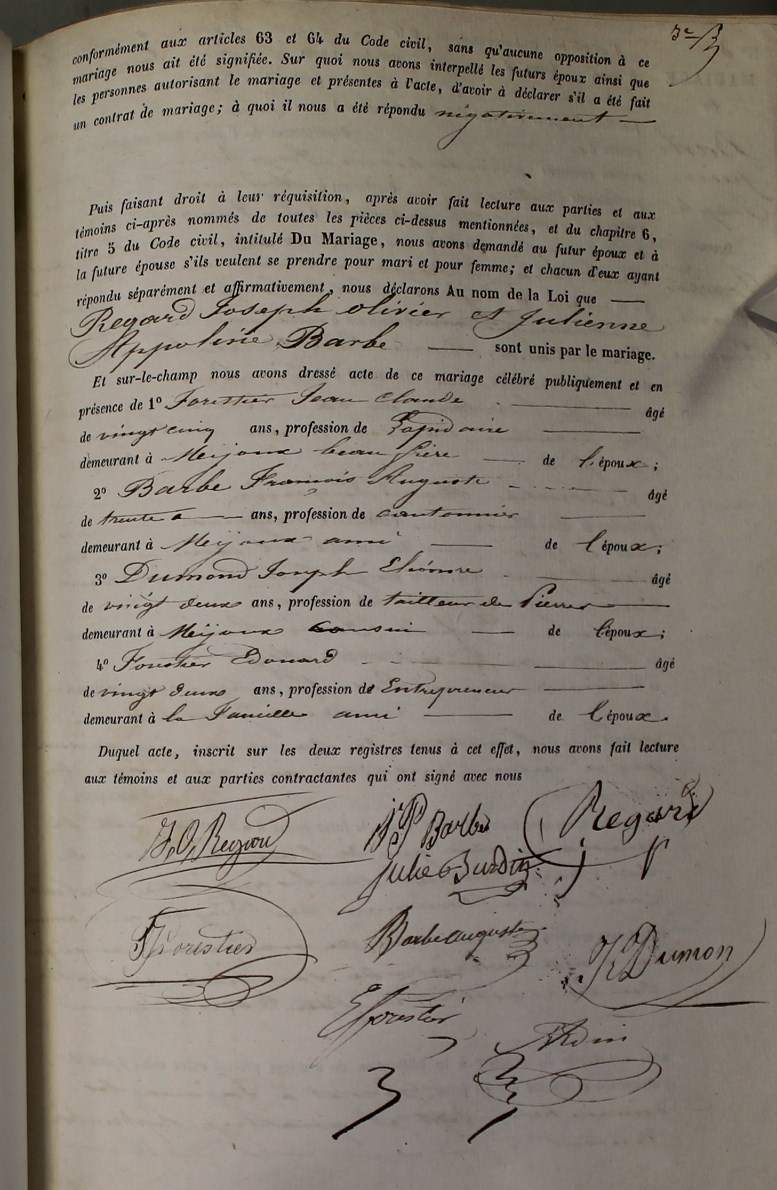 conformément aux articles 63 et 64 du Code civil, sans qu'aucune opposition à ce
mariage nous ait été signifiée. Sur quoi nous avons interpellé les futurs époux ainsi que
les personnes autorisant le mariage et présentes à l'acte, d'avoir à déclarer s'il a été fait
un contrat de mariage; à quoi il nous a été répondu négativement —
Puis faisant droit à leur réquisition, après avoir fait lecture aux parties et aux
témoins ci-après nommés de toutes les pièces ci-dessus mentionnées, et du chapitre 6,
titre 5 du Code civil, intitulé Du Mariage, nous avons demandé au futur époux et à
la future épouse s'ils veulent se prendre pour mari et pour femme; et chacun d'eux ayant
répondu séparément et affirmativement, nous déclarons Au nom de la Loi que —
Regard Joseph olivier et Julienne
Appoline Barbe — sont unis par le mariage.
Et sur-le-champ nous avons dressé acte de ce mariage célébré publiquement et en
présence de 1º Forestier Jean Claude — âgé
de vingt cinq ans, profession de Lapidaire —
demeurant à Meijoux beau frère — de l'époux;
2º Barbe François Auguste — âgé
de trente — ans, profession de cantonnier —
demeurant à Meijoux ami — de l'époux;
3º Dumond Joseph — âgé
de vingt deux ans, profession de tailleur de Pierres —
demeurant à Meijoux cousin — de l'époux;
4º Forestier Edouard — âgé
de vingt deux ans, profession de Entrepreneur —
demeurant à la ami — de l'époux.
Duquel acte, inscrit sur les deux registres tenus à cet effet, nous avons fait lecture
aux témoins et aux parties contractantes qui ont signé avec nous
J. O. Regard
Barbe
Regard
Julie Burdin
Forestier
Barbe auguste
Dumon
E forestier